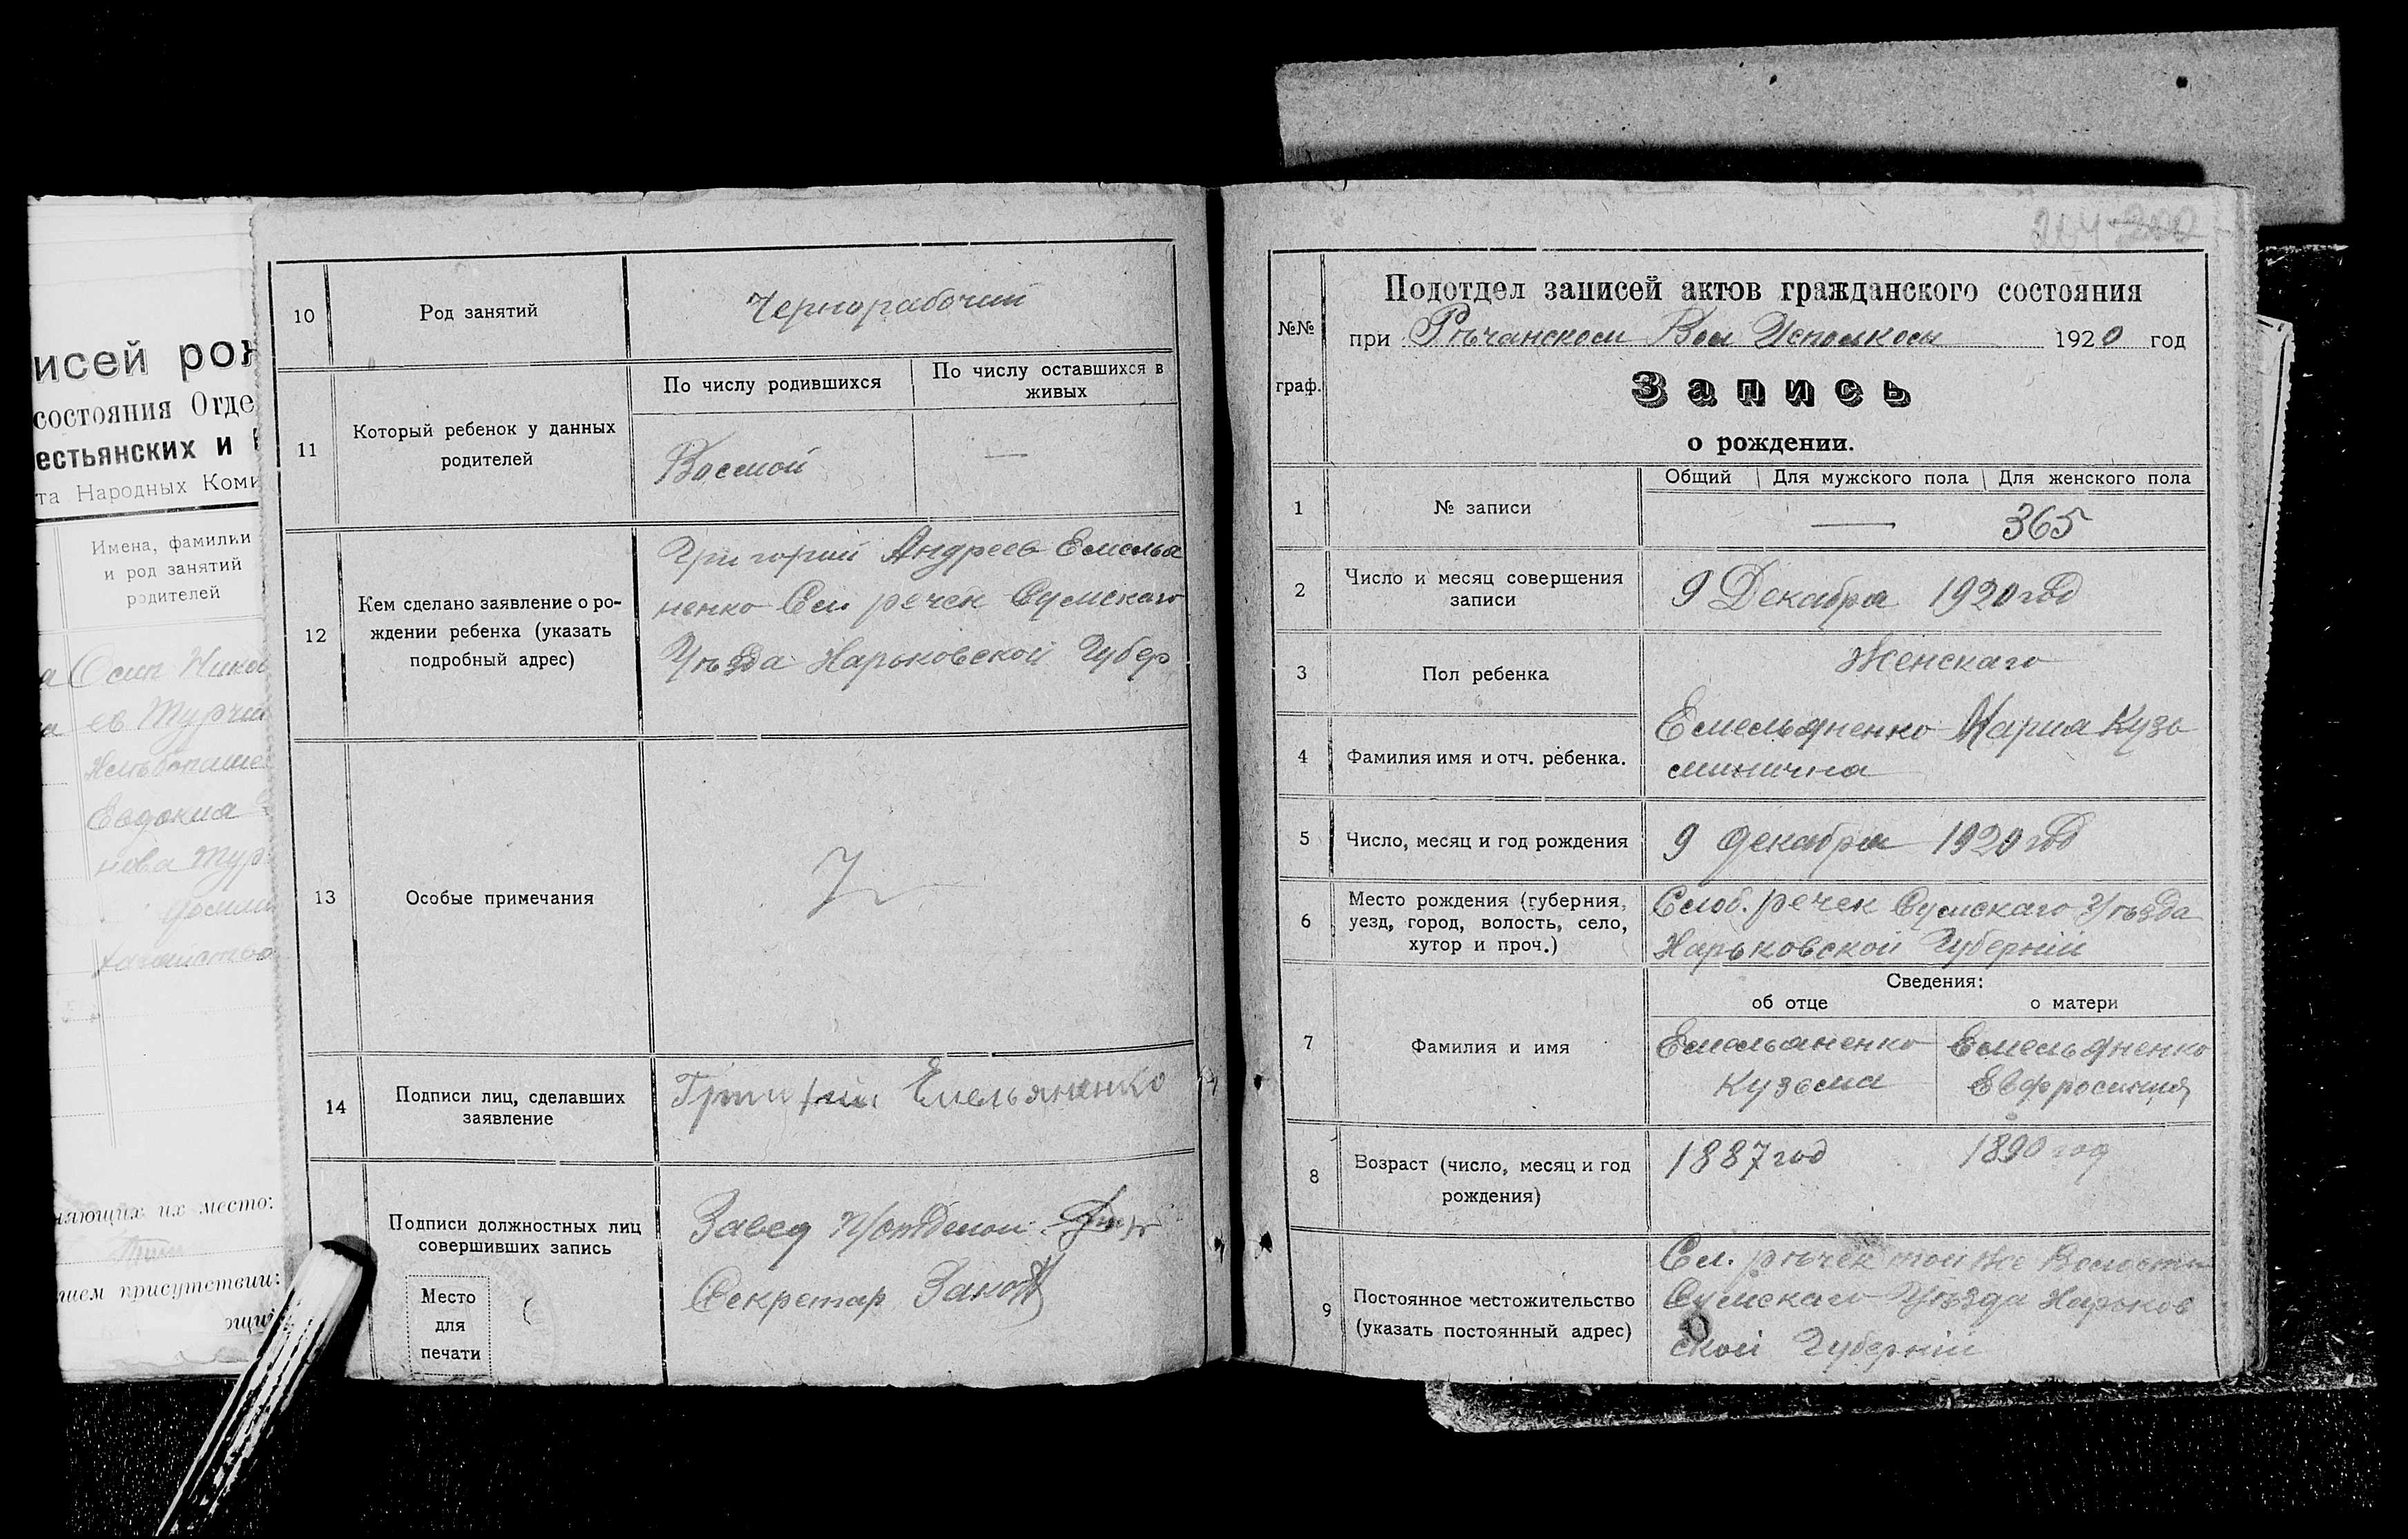 исей рож
состояния Отде
естьянских и
та Народных Коми
Имена, фамилии
и род занятий
родителей
Осип Никол
ев Турчи
Евдокия
нова Тур
няющих их место:
присутствии:
10
Род занятий
Чернорабочий
11
Который ребенок у данных
родителей
По числу родившихся
По числу оставшихся в
живых
Восмой
—
12
Кем сделано заявление о ро-
ждении ребенка (указать
подробный адрес)
Григорий Андреев Емелья
ненко Сл. речек Сумскаго
Уѣзда Харьковской Губер
13
Особые примечания
14
Подписи лиц, сделавших
заявление
Григорий Емельяненко
Подписи должностных лиц
совершивших запись
Завед
Секретар
Место
для
печати
204 200
№№
граф.
Подотдел записей актов гражданского состояния
при Рѣчанском Вол Исполком 1920 год
Запись
о рождении.
1
№ записи
Общий
Для мужского пола
Для женского пола
—
365
2
Число и месяц совершения
записи
9 Декабря 1920 год
3
Пол ребенка
Женскаго
4
Фамилия имя и отч. ребенка.
Емельяненко Мария Кузь
минична
5
Число, месяц и год рождения
9 декабря 1920 год
6
Место рождения (губерния,
уезд, город, волость, село,
хутор и проч.)
Слоб. речек Сумскаго Уѣзда
Харьковской Губернии
7
Фамилия и имя
Сведения:
об отце
о матери
Емельяненко
Кузьма
Емельяненко
Евфросиния
8
Возраст (число, месяц и год
рождения)
1887 год
1890 год
9
Постоянное местожительство
(указать постоянный адрес)
Сл. рѣчек той же Волости
Сумскаго Уѣзда Харьков
ской Губернии